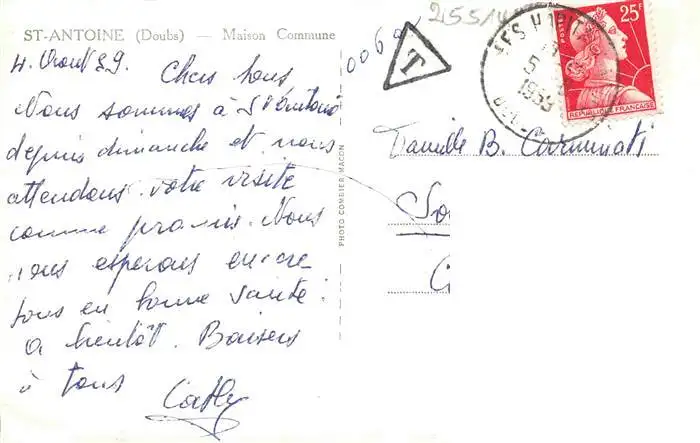 ST-ANTOINE (Doubs) — Maison Commune
4. Août 59.
Chers tous
Nous sommes à St Antoine
depuis dimanche et nous
attendons votre visite
comme promis. Nous
vous esperons encore
tous en bonne santé.
a bientôt. Baisers
à tous
Cathy
PHOTO COMBIER MACON
T
25F
REPUBLIQUE FRANÇAISE
5
Famille B.